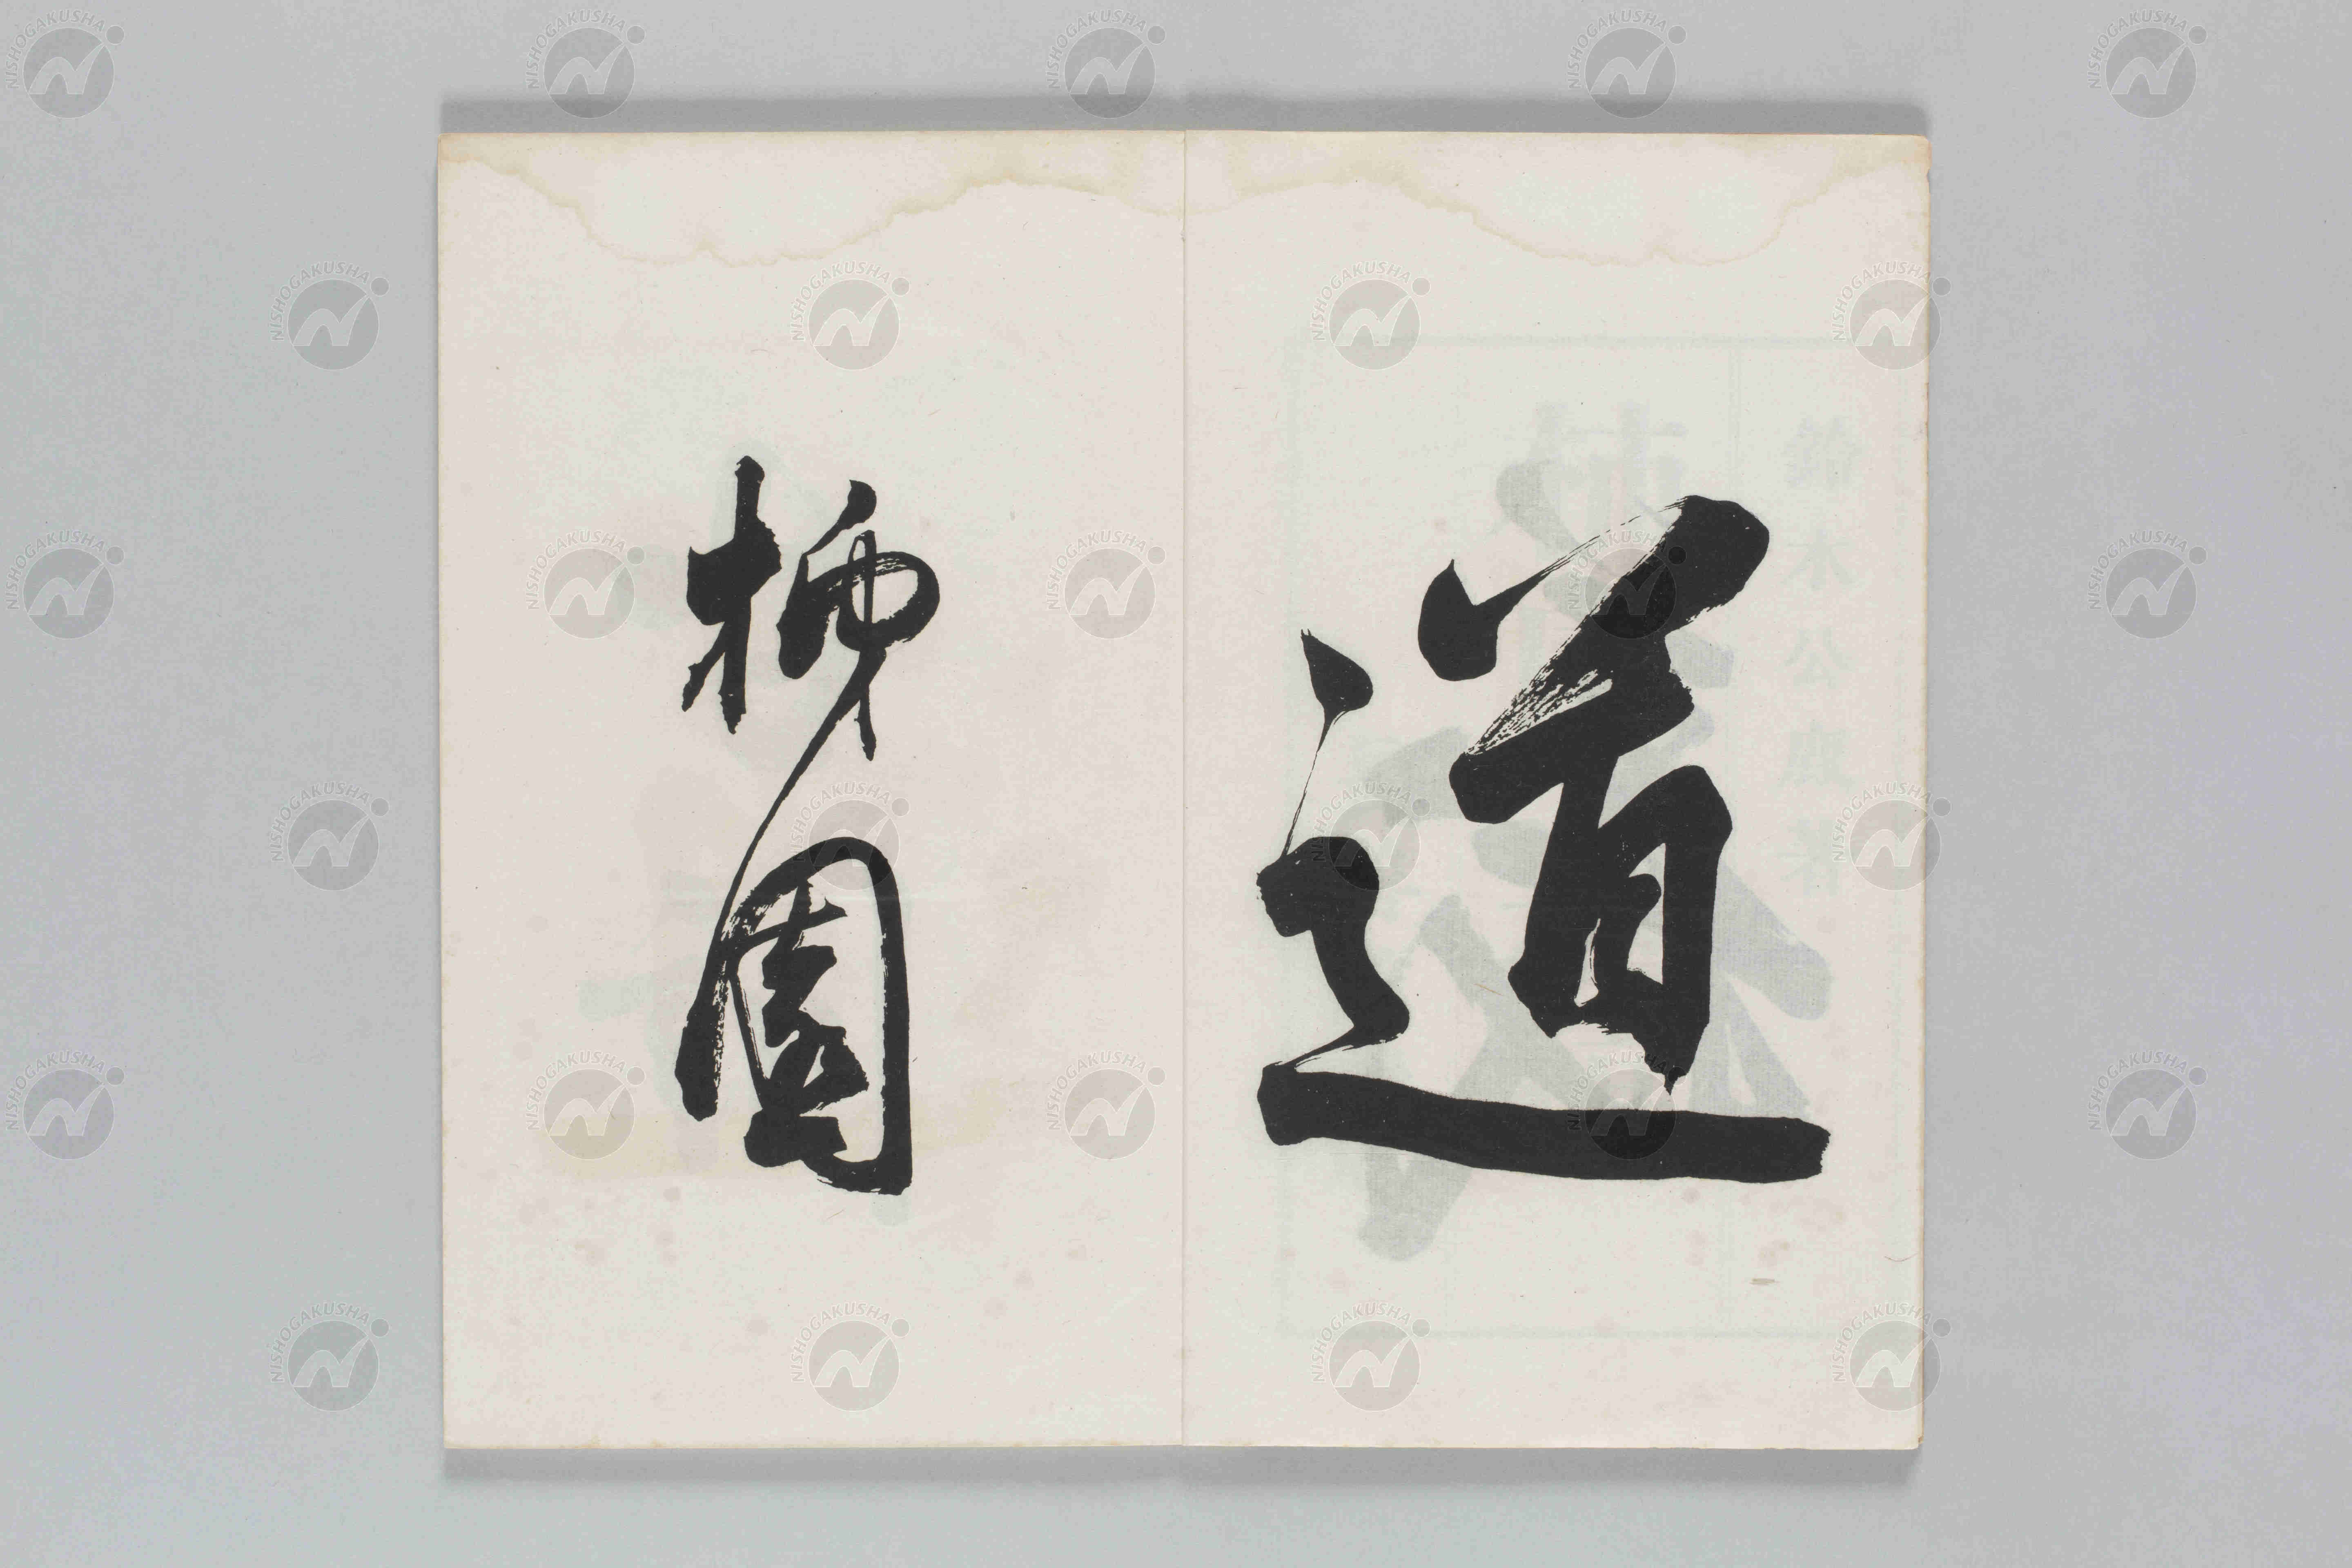 道
柳園
NISHOGAKUSHA